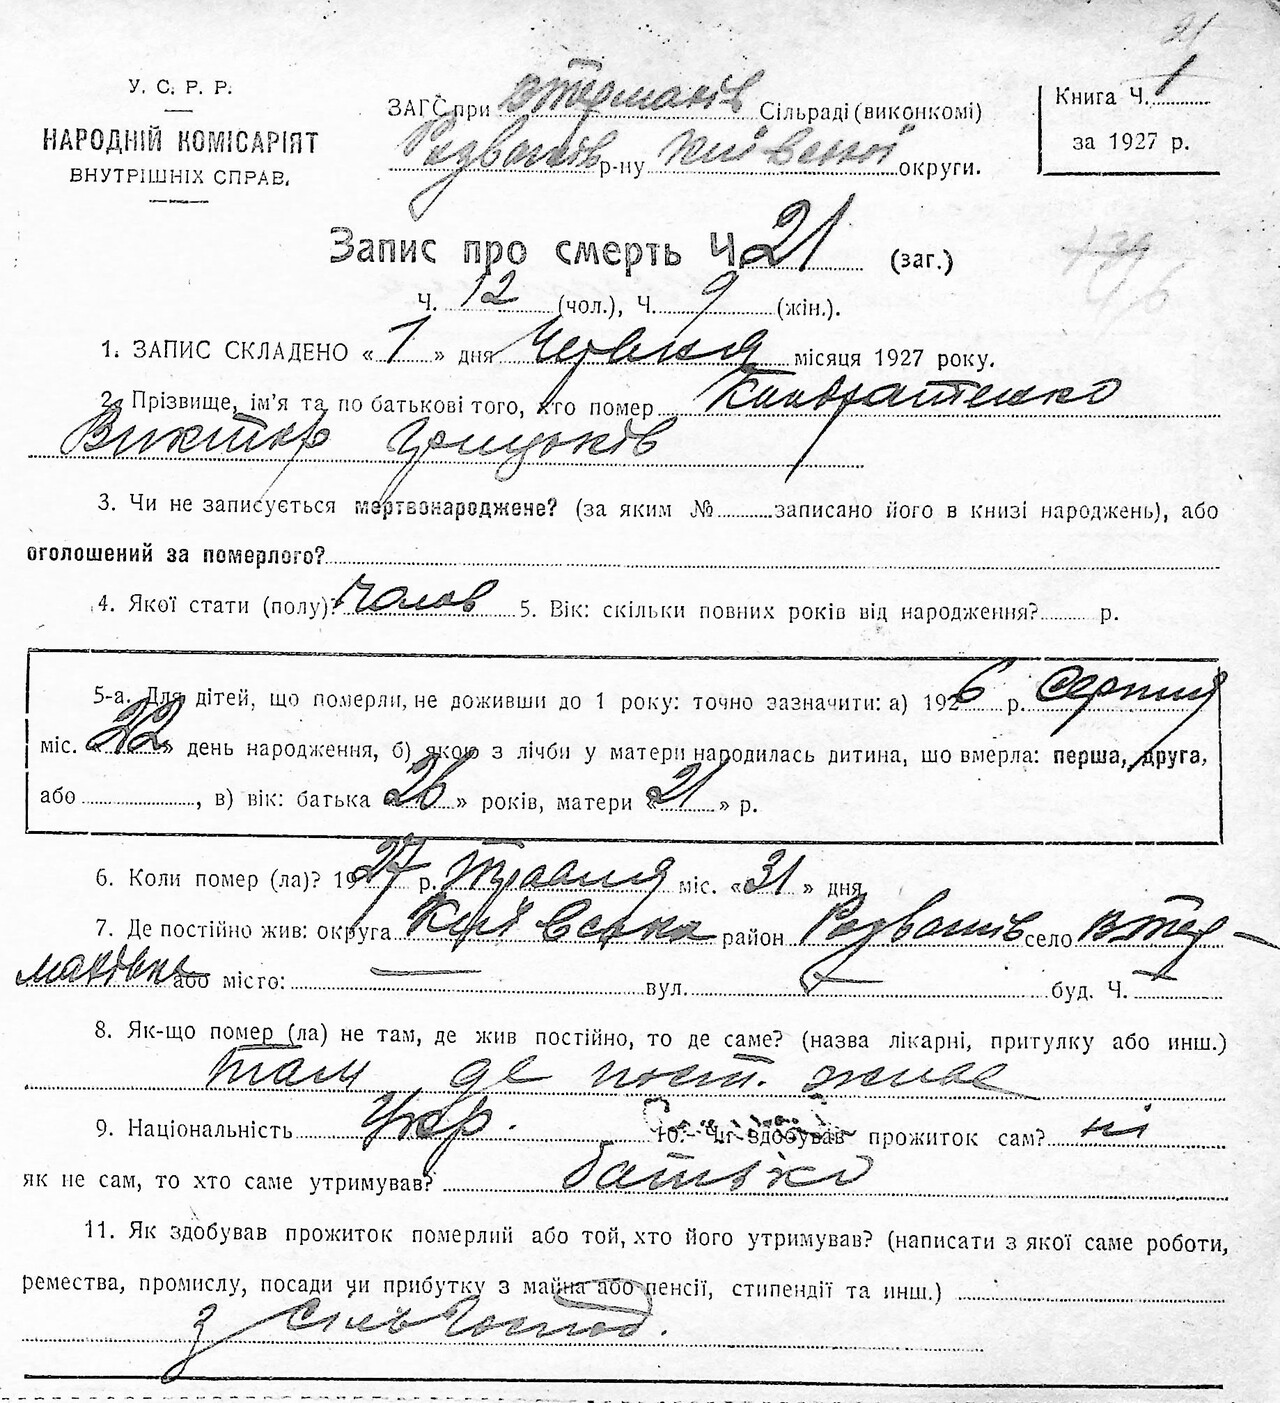 21
У. С. Р. Р.
НАРОДНІЙ КОМІСАРІЯТ
ВНУТРІШНІХ СПРАВ.
ЗАГС при Сільраді (виконкомі)
Розважів р-ну Київської округи.
Книга Ч. 1
за 1927 р.
Запис про смерть Ч. 21 (заг.)
Ч. 12 (чол.), Ч. 9 (жін.).
1. ЗАПИС СКЛАДЕНО « 1 » дня Червня місяця 1927 року.
2. Прізвище, ім'я та по батькові того, хто помер Кондратенко
Виктор
3. Чи не записується мертвонароджене? (за яким № записано його в книзі народжень), або
оголошений за померлого?
4. Якої стати (полу)? Чолов 5. Вік: скільки повних років від народження? р.
5-а. Для дітей, що померли, не доживши до 1 року: точно зазначити: а) 1926 р. Серпня
міс. « 22 » день народження, б) якою з лічби у матери народилась дитина, що вмерла: перша, друга,
або , в) вік: батька 26 » років, матери « 21 » р.
6. Коли помер (ла)? 1927 р. Травня міс. « 31 » дня
7. Де постійно жив: округа Київська район Розважів село
або місто: — вул. — буд. Ч. —
8. Як-що помер (ла) не там, де жив постійно, то де саме? (назва лікарні, притулку або инш.)
там де пост. живе
9. Національність Укр. 10. Чи здобував прожиток сам? ні
як не сам, то хто саме утримував? батько
11. Як здобував прожиток померлий або той, хто його утримував? (написати з якої саме роботи,
ремества, промислу, посади чи прибутку з майна або пенсії, стипендії та инш.)
з сільгоспод.